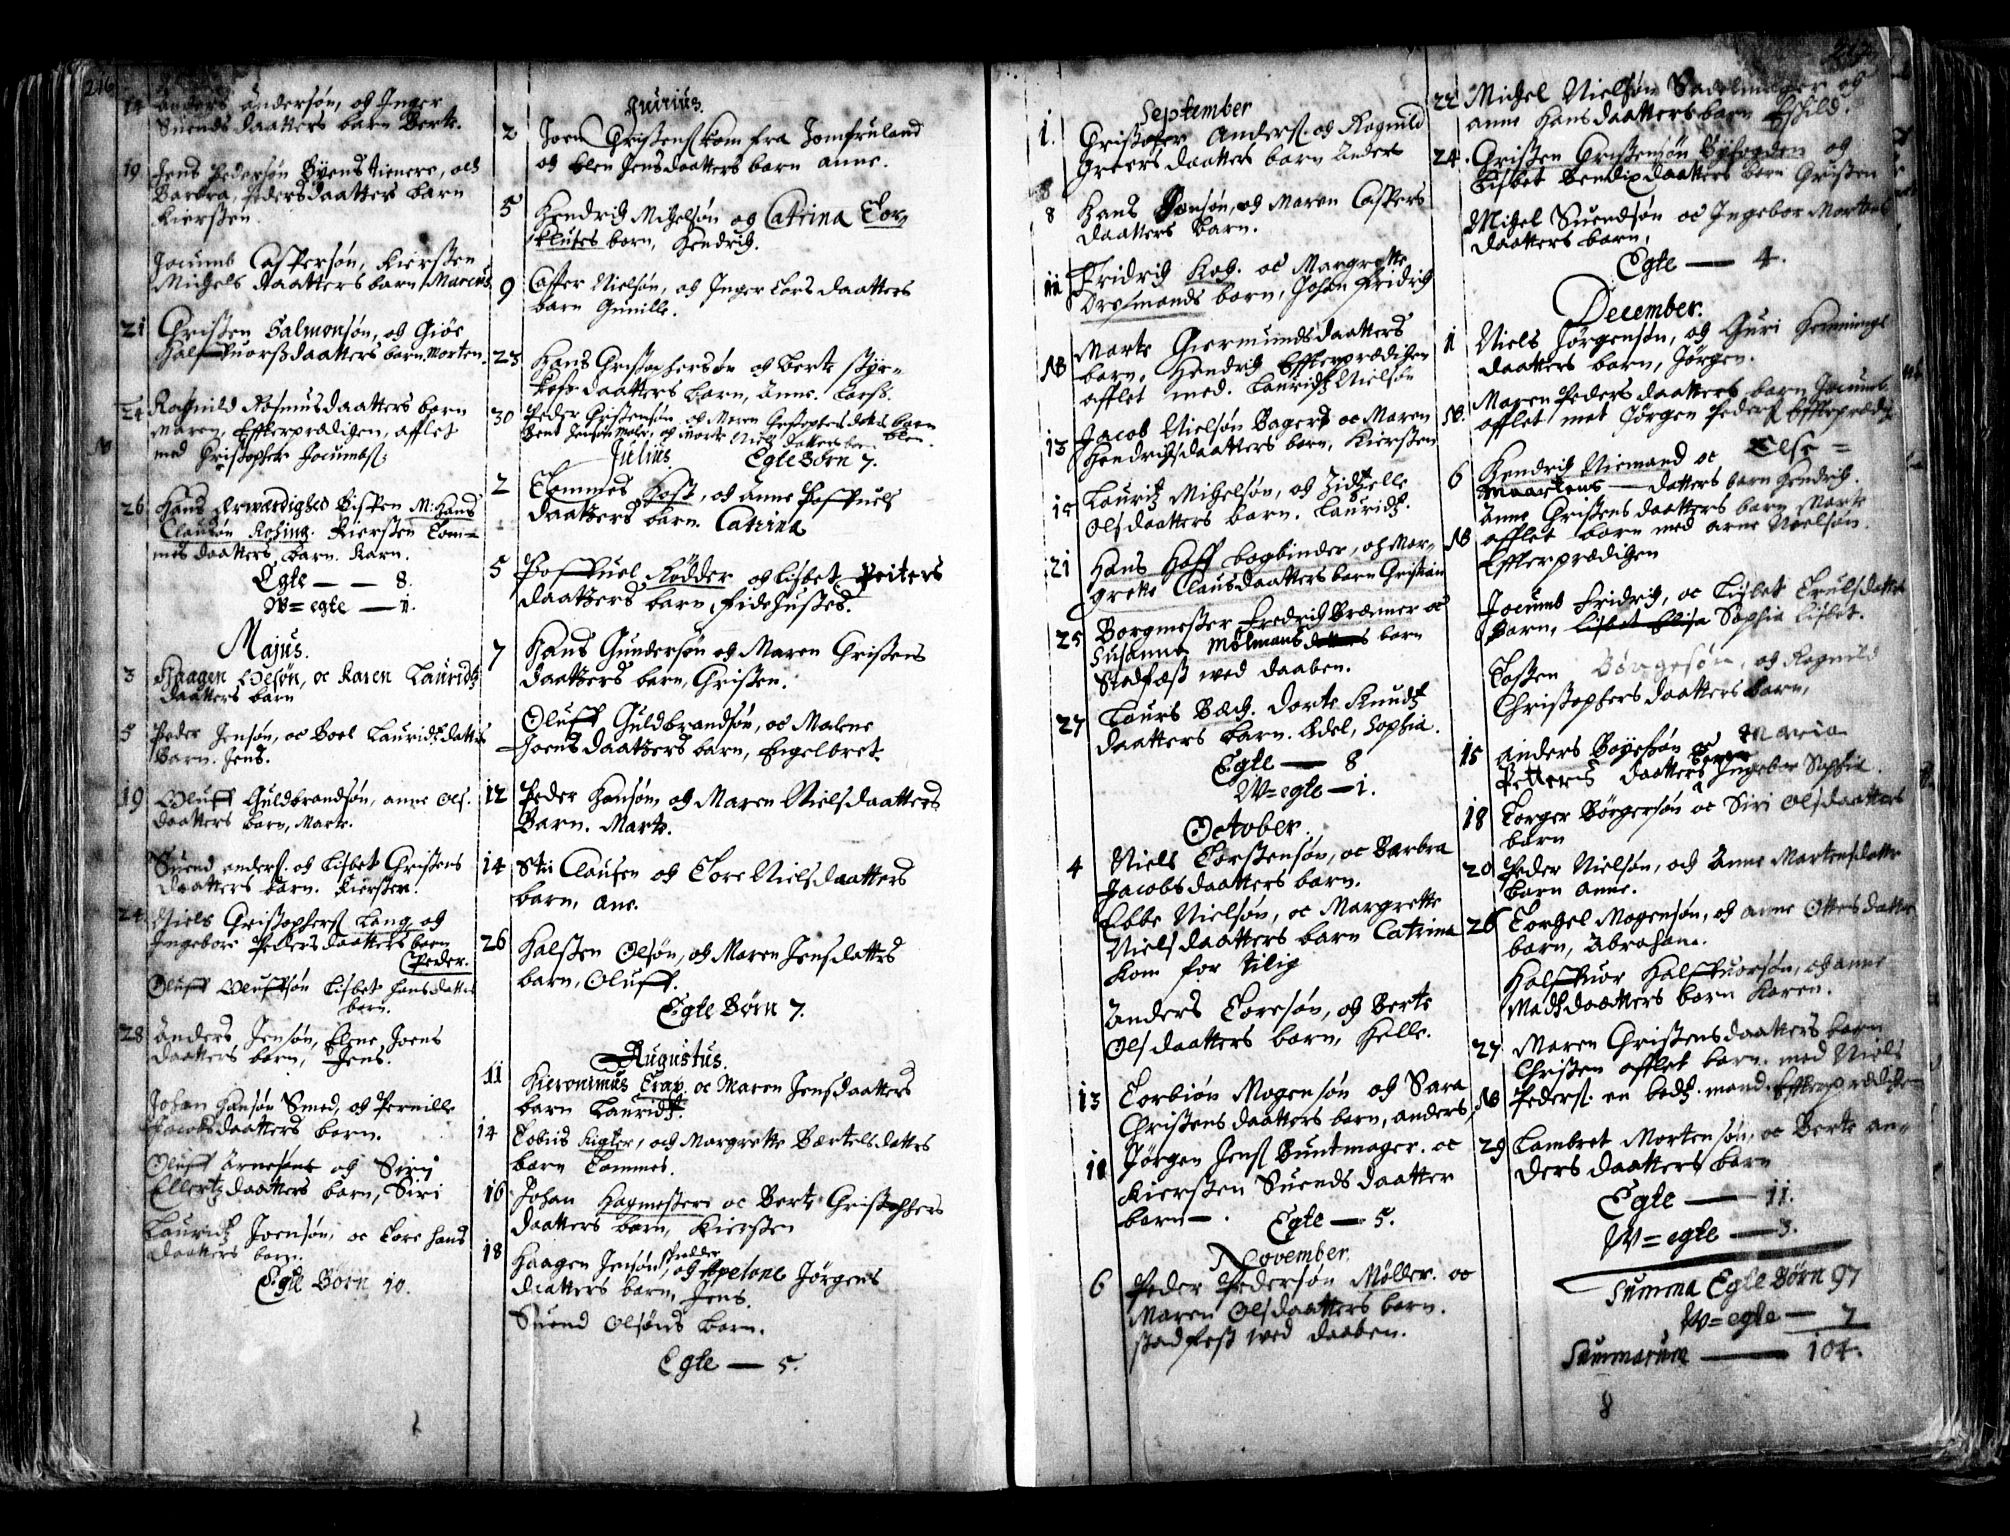 216
14 Anders Andersøn, og Inger
Suends daatters barn Berte.
19 Jens Pedersøn Byens tienere, och
Barbra, Peders daatters barn
Kiersten
Jocumb Caspersøn, Kiersten
Michels daatters barn Marcus
21 Christen Salmonsøn, og Giøe
Halfuorsdaatters barn Morten.
24 Ragnild Rasmusdaatters barn
NB Maren, Effterpradigen, afflet
med Christopher Jocumbs:
26 Hans Ærwærdighed Bispen M: Hans
Clausøn Rosing. Kiersten Tom=
mesdaatters barn. Karn.
Egte — — 8.
W=egte — 1.
Majus.
3 Haagen Olesøn, oc Karen Lauridtz
daatters barn
5 Peder Jensøn, oc Boel Lauridtz datters
Barn. Jens.
19 Oluff Guldbrandsøn, anne Ols.
daatters barn, Marte.
Suend anders. og Lisbet Christens
daatters barn. Kiersten.
24 Niels Christophers Lang og
Ingebore Pedersdaatters barn
Peder.
Oluff Oluffsøn Lisbet hansdatters
barn.
28 Anders Jensøn, Elene Joens
daatters barn, Jens.
Johan Hansøn Smed, og Pernille
Jacobsdaatters barn.
Oluff Arnesøns og Siri
Ellertz daatters barn, Siri
Lauridtz Joensøn, oc Tore hans
daatters barn.
Egte Børn 10.
Junius.
2 Joen Christens kom fra Jomfruland
og Elen Jensdaatters barn anne.
5 Hendrich Michelsøn og Catrina Tor=
klutes barn, Hendrich.
9 Casper Nielsøn, og Inger Lars daatters
barn Gunille.
23 Hans Christophersøn og Berte Styr=
kors daatters barn, Anne.
30 Peder Christensøn, og Maren Christophers dats barn
Bent Jensøn, og Marte Niels datters barn Elen.
Egte Børn 7.
Julius.
2 Tommes Host, og Anne Poffuels
daatters barn. Catrina
5 Poffuel Rødder og Lisbet Peiters
daatters barn, Fide Justes.
7 Hans Gundersøn og Maren Christens
daatters barn, Christen.
Oluff Guldbrandsøn, oc Malene
Joensdaatters barn, Engelbret.
12 Peder Hansøn og Maren Nielsdaatters
Barn. Marte.
14 Sti Clausen og Tore Nielsdaatters
barn, Ane.
26 Halsten Olsøn, og Maren Jensdatters
barn, Oluff.
Egte Børn 7.
Augustus.
11 Hieronimus Trap, oc Maren Jensdaatters
barn Lauridtz.
14 Tobiis Rigter, och Margrette Bærtelsdatters
barn Tommes.
16 Johan Hagmestere oc Berte Christophers
daatters barn, Kiersten
18 Haagen Jensøn, og Apelone Jørgens
daatters barn, Jens.
Suend Olsøns barn.
Egte — 5.
217
September
1. Christopher Anders. og Ragnild
Greersdaatters barn Anders
8 Hans Jensøn, og Maren Caspers
daatters barn.
11 Fridrich Koch. oc Margrette
Ordtmands barn, Johan Fridrich
NB Marte Giermundsdaatters
barn, Hendrich Effterprædigen
afflet med. Lauridtz Nielsøn
13 Jacob Nielsøn Bagers oc Maren
Hendrichsdaatters barn, Kiersten
15 Lauritz Michelsøn, og Zidtzelle
Olsdaatters barn. Lauridtz.
21 Hans Hoff bogbinder, og Mar=
grete Clausdaatters barn Christian
25 Borgmester Fredrich Brænner oc
Susanne Mølmans datters barn
Stadfæst wed daaben.
27 Laurs Bæch. Dorte Knudtz
daatters barn. Edel, Sophia.
Egte — 8
W=egte — 1.
October.
4 Niels Torstensøn, oc Barbra
Jacobsdaatters barn.
Ebbe Nielsøn, oc Margrette
Nielsdaatters barn Catrina
kom for tilig
Anders Toresøn, og Berte
Olsdaatters barn, Helle.
13 Torbiøn Mogensøn og Sara
Christensdaatters barn, anders
18 Jørgen Jens Buntmager. oc
Kiersten Suends daatter
barn —.
Egte — 5.
November.
6 Peder Pedersøn Møller. oc
Maren Olsdaatters barn.
stadfest wed daaben.
22 Michel Nielsøn Sadelmager og
anne Hansdaatters barn Eskild.
24. Christen Christensøn Byfogden og
Lisbet Bendixdaatters barn Christen
Michel Suendsøn oc Ingebor Mortens
daatters barn,
Egte — 4.
December.
1 Niels Jørgensøn, og Guri Hemmings
daatters barn, Jørgen.
NB. Maren Peders daatters barn Jocumb
afflet met Jørgen Peders Effterprædig
6 Hendrich Niemand oc Else =
Maartens — datters barn Hendrich.
NB Anne Christensdaatters barn Marte
afflet barn med Arne Noelsøn.
Effterprædigen
Jocumb Fridrich, oc Lisbet Truelsdatter
Barn, Sophia Lisbet.
Tosten Børgesøn, og Ragnild
Christophersdaatters barn,
15 Anders Boyesøn oc Maria
Petters daatters barn Ingebor Sophia.
18 Torger Børgersøn oc Siri Olsdaatters
barn
20 Peder Nielsøn, och Anne Martensdatter
barn anne.
26 Torgel Mogensøn, og anne Ottesdatter
barn, Abraham.
Halffuor Halffuorsøn, og anne
Madtzdaatters barn Karen.
27 Maren Christensdaatters barn
Christen afflet barn. med Niels
NB Peders. en bodtz.mand. Effterprædigen
29 Lambret Mortensøn, oc Berte an=
dersdaatters barn
Egte — 11.
W=egte — 3.
Summa Egte Børn 97
W=egte — 7
Summarum — 104.
8